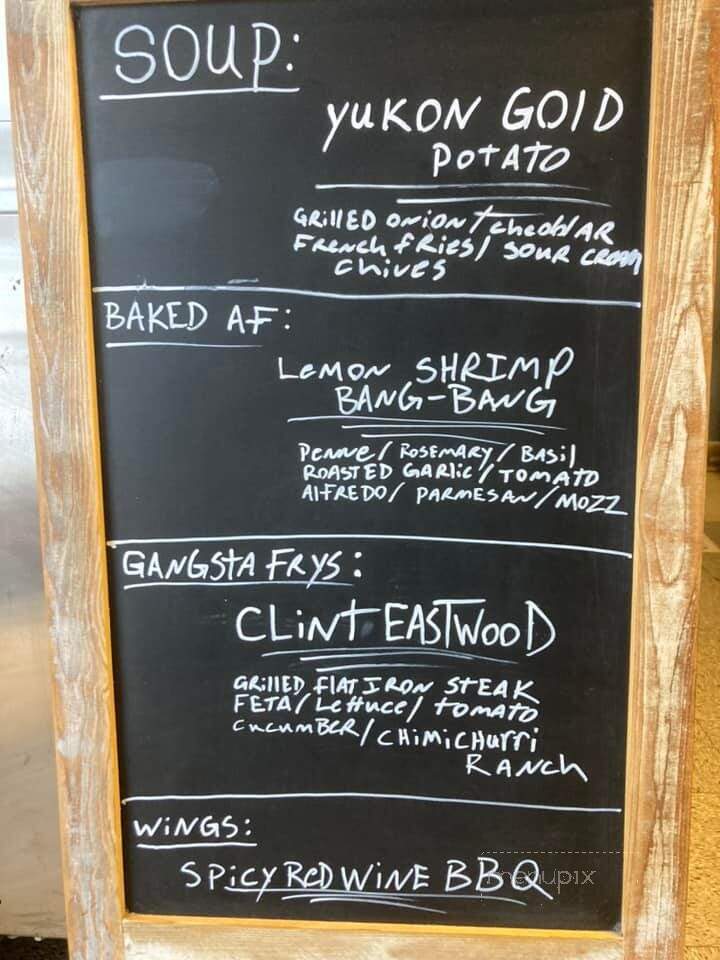 SOUP:
YUKON GOLD
POTATO
GRILLED ONION / CHEDDAR
FRENCH FRIES / SOUR CREAM
CHIVES
BAKED AF:
LEMON SHRIMP
BANG-BANG
PENNE / ROSEMARY / BASIL
ROASTED GARLIC / TOMATO
ALFREDO / PARMESAN / MOZZ
GANGSTA FRYS:
CLINT EASTWOOD
GRILLED FLAT IRON STEAK
FETA / LETTUCE / TOMATO
CUCUMBER / CHIMICHURRI
RANCH
WINGS:
SPICY RED WINE BBQ
menupix